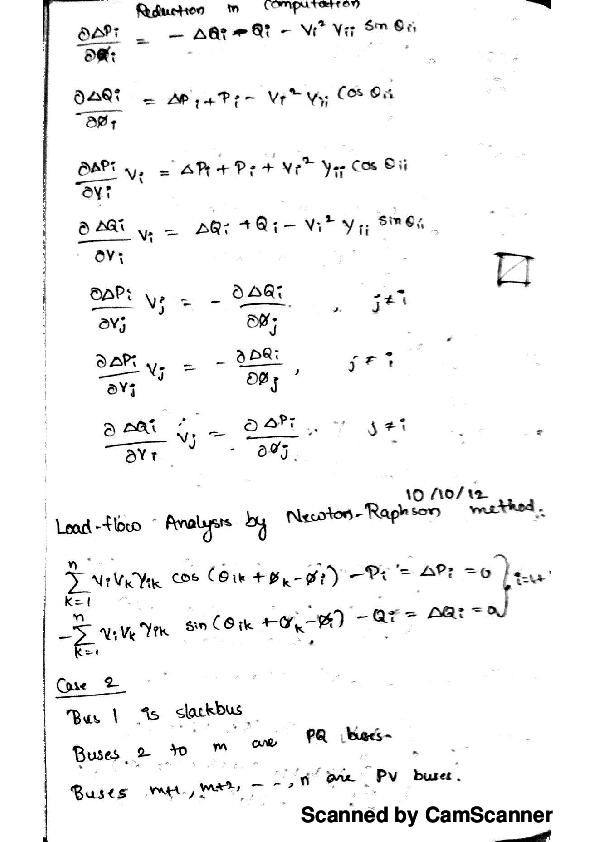 Reduction in Computation
∂ΔPi/∂Øi = - ΔQi - Qi - Vi² Yii Sin θii
∂ΔQi/∂Øi = ΔPi + Pi - Vi² Yii Cos θii
∂ΔPi/∂Vi Vi = ΔPi + Pi + Vi² Yii Cos θii
∂ΔQi/∂Vi Vi = ΔQi + Qi - Vi² Yii Sin θii
∂ΔPi/∂Vj Vj = - ∂ΔQi/∂Øj , j ≠ i
∂ΔPi/∂Vj Vj = - ∂ΔQi/∂Øj , j ≠ i
∂ΔQi/∂Vi Vj = ∂ΔPi/∂Øj j ≠ i
10/10/12
Load-flow Analysis by Newton-Raphson method:
n Σ k=1 ViVkYik cos (θik + Øk - Øi) - Pi = ΔPi = 0
n -Σ k=1 ViVkYik sin (θik + Øk - Øi) - Qi = ΔQi = 0
Case 2
Bus 1 is slackbus
Buses 2 to m are PQ buses.
Buses m+1, m+2, - - , n are PV buses.
Scanned by CamScanner